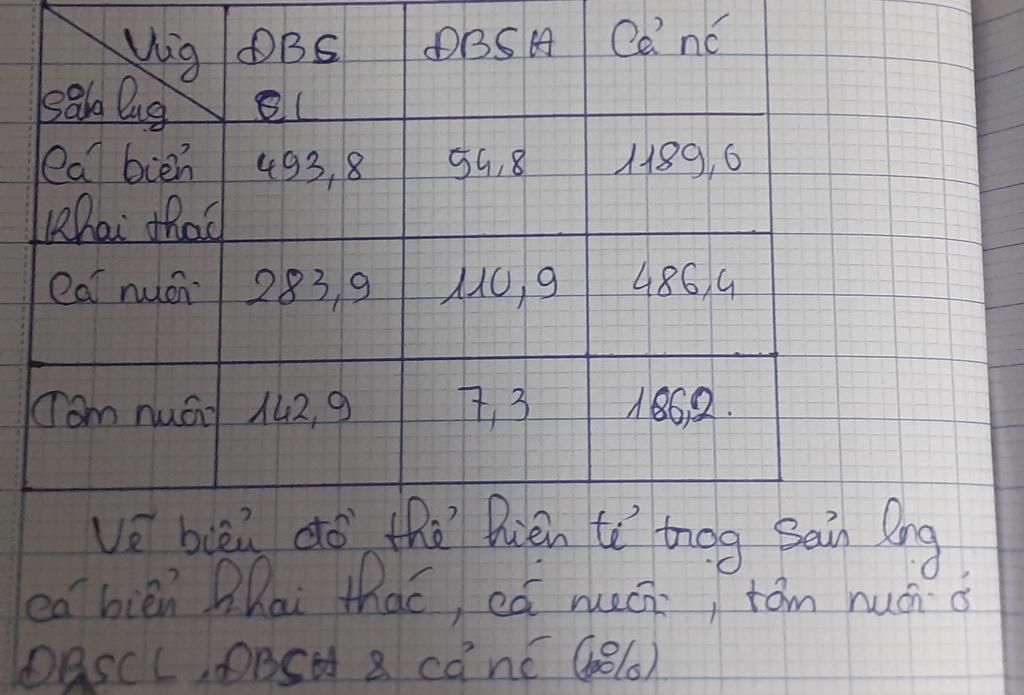 Vùg ĐBS ĐBSH Cả nc
Sản lug CL
Cá biển 493,8 54,8 1189,6
khai thác
Cá nuôi 283,9 110,9 486,4
Tôm nuôi 142,9 7,3 186,2.
Vẽ biểu đồ thể hiện tỉ trọg sản lng
cá biển khai thác, cá nuôi, tôm nuôi ở
ĐBSCL, ĐBSH & cả nc (%)